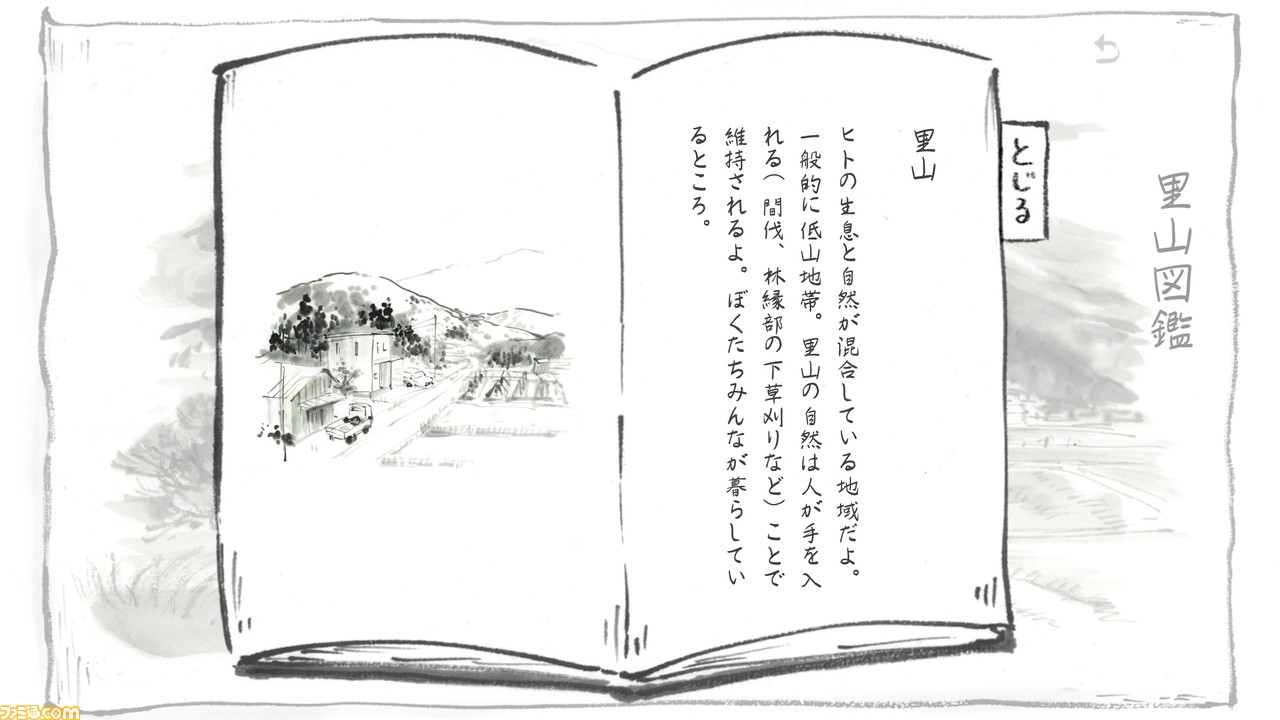 里山図鑑
とじる
里山
ヒトの生息と自然が混合している地域だよ。
一般的に低山地帯。里山の自然は人が手を入
れる(間伐、林縁部の下草刈りなど)ことで
維持されるよ。ぼくたちみんなが暮らしてい
るところ。
ファミ通.com